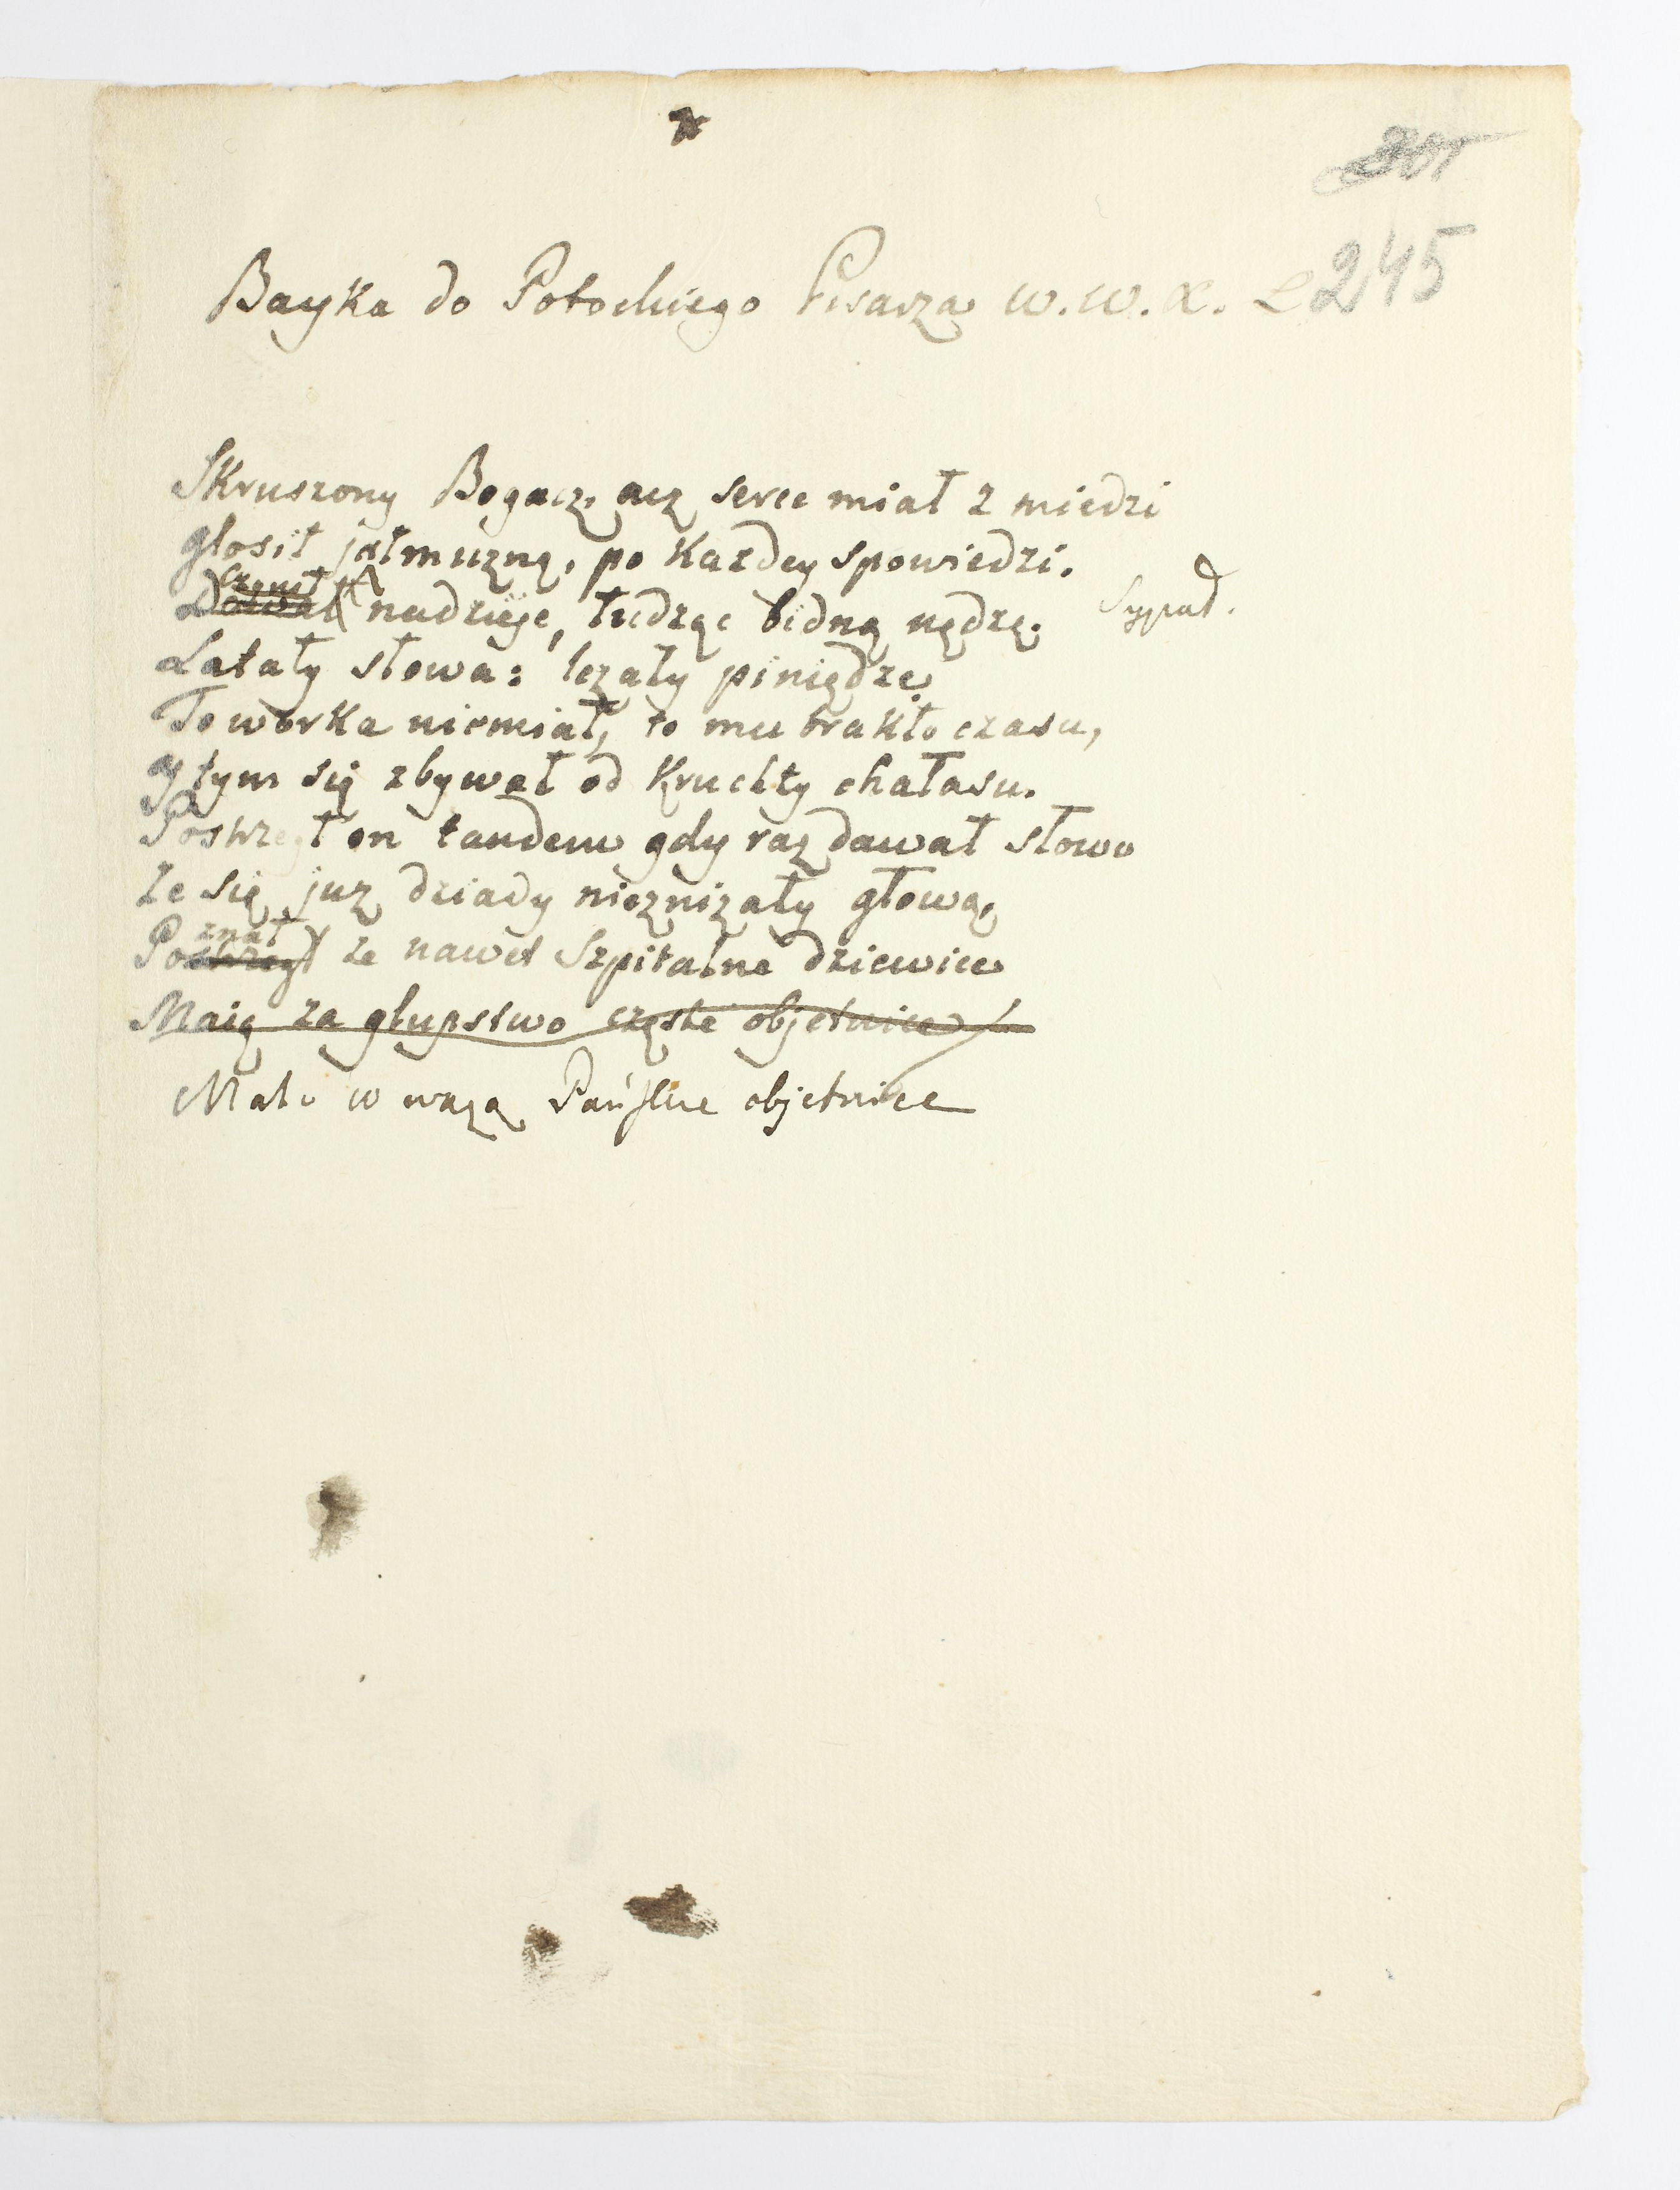 245
Bayka do Potockiego Pisarza W. W. X. L
Skruszony Bogacz, acz serce miał z miedzi
Głosił jałmużnę, po Każdey spowiedzi.
czynił
Dawał nadzieje, łudząc bidną nędzę. Sypał.
Latały słowa: leżały piniędze.
To workа niemiał, to mu brakło czasu,
Y tym się zbywał od Kruchty chałasu.
Postrzegł on tandem gdy raz dawał słowo
Ze się już dziady nieznizały głową,
znał
Postrzegł ze nawet Szpitalne dziewice
Maią za głupstwo częste objetnice
Mało w wazą Pańskie objetnice